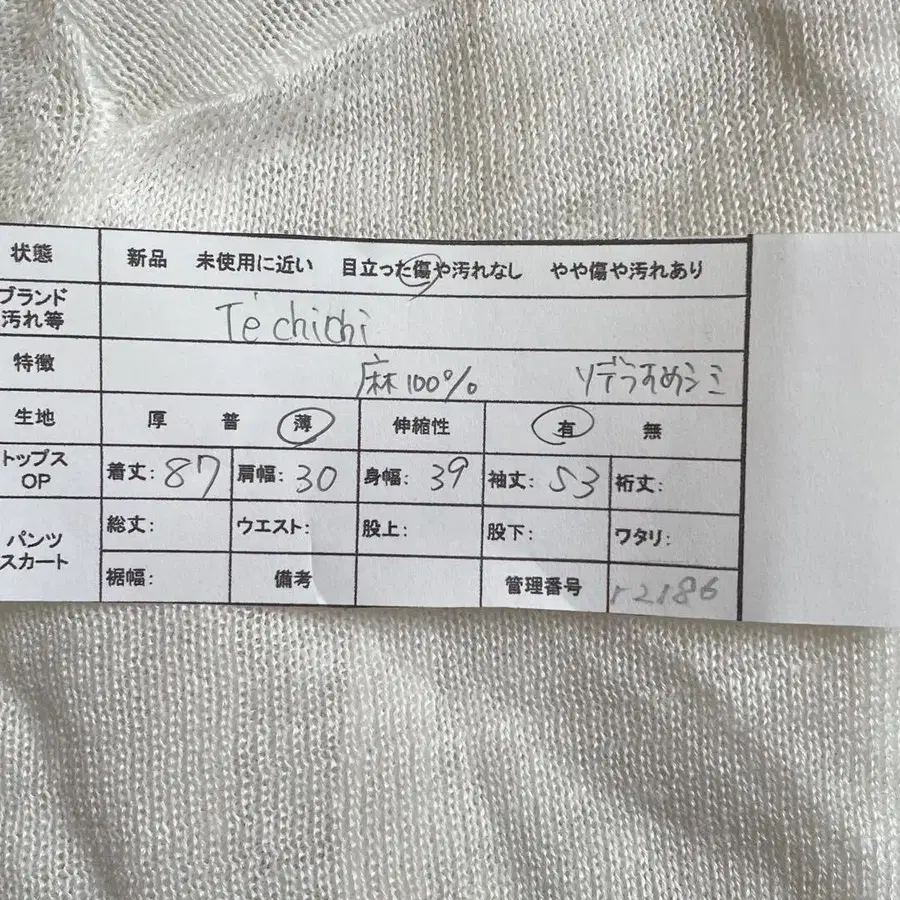 状態 新品 未使用に近い 目立った傷や汚れなし やや傷や汚れあり
ブランド
汚れ等 Te'chichi
特徴 麻100% ソデうすめシミ
生地 厚 普 薄 伸縮性 有 無
トップス
OP 着丈:87 肩幅:30 身幅:39 袖丈:53 裄丈:
パンツ
スカート 総丈: ウエスト: 股上: 股下: ワタリ:
裾幅: 備考 管理番号 r2186